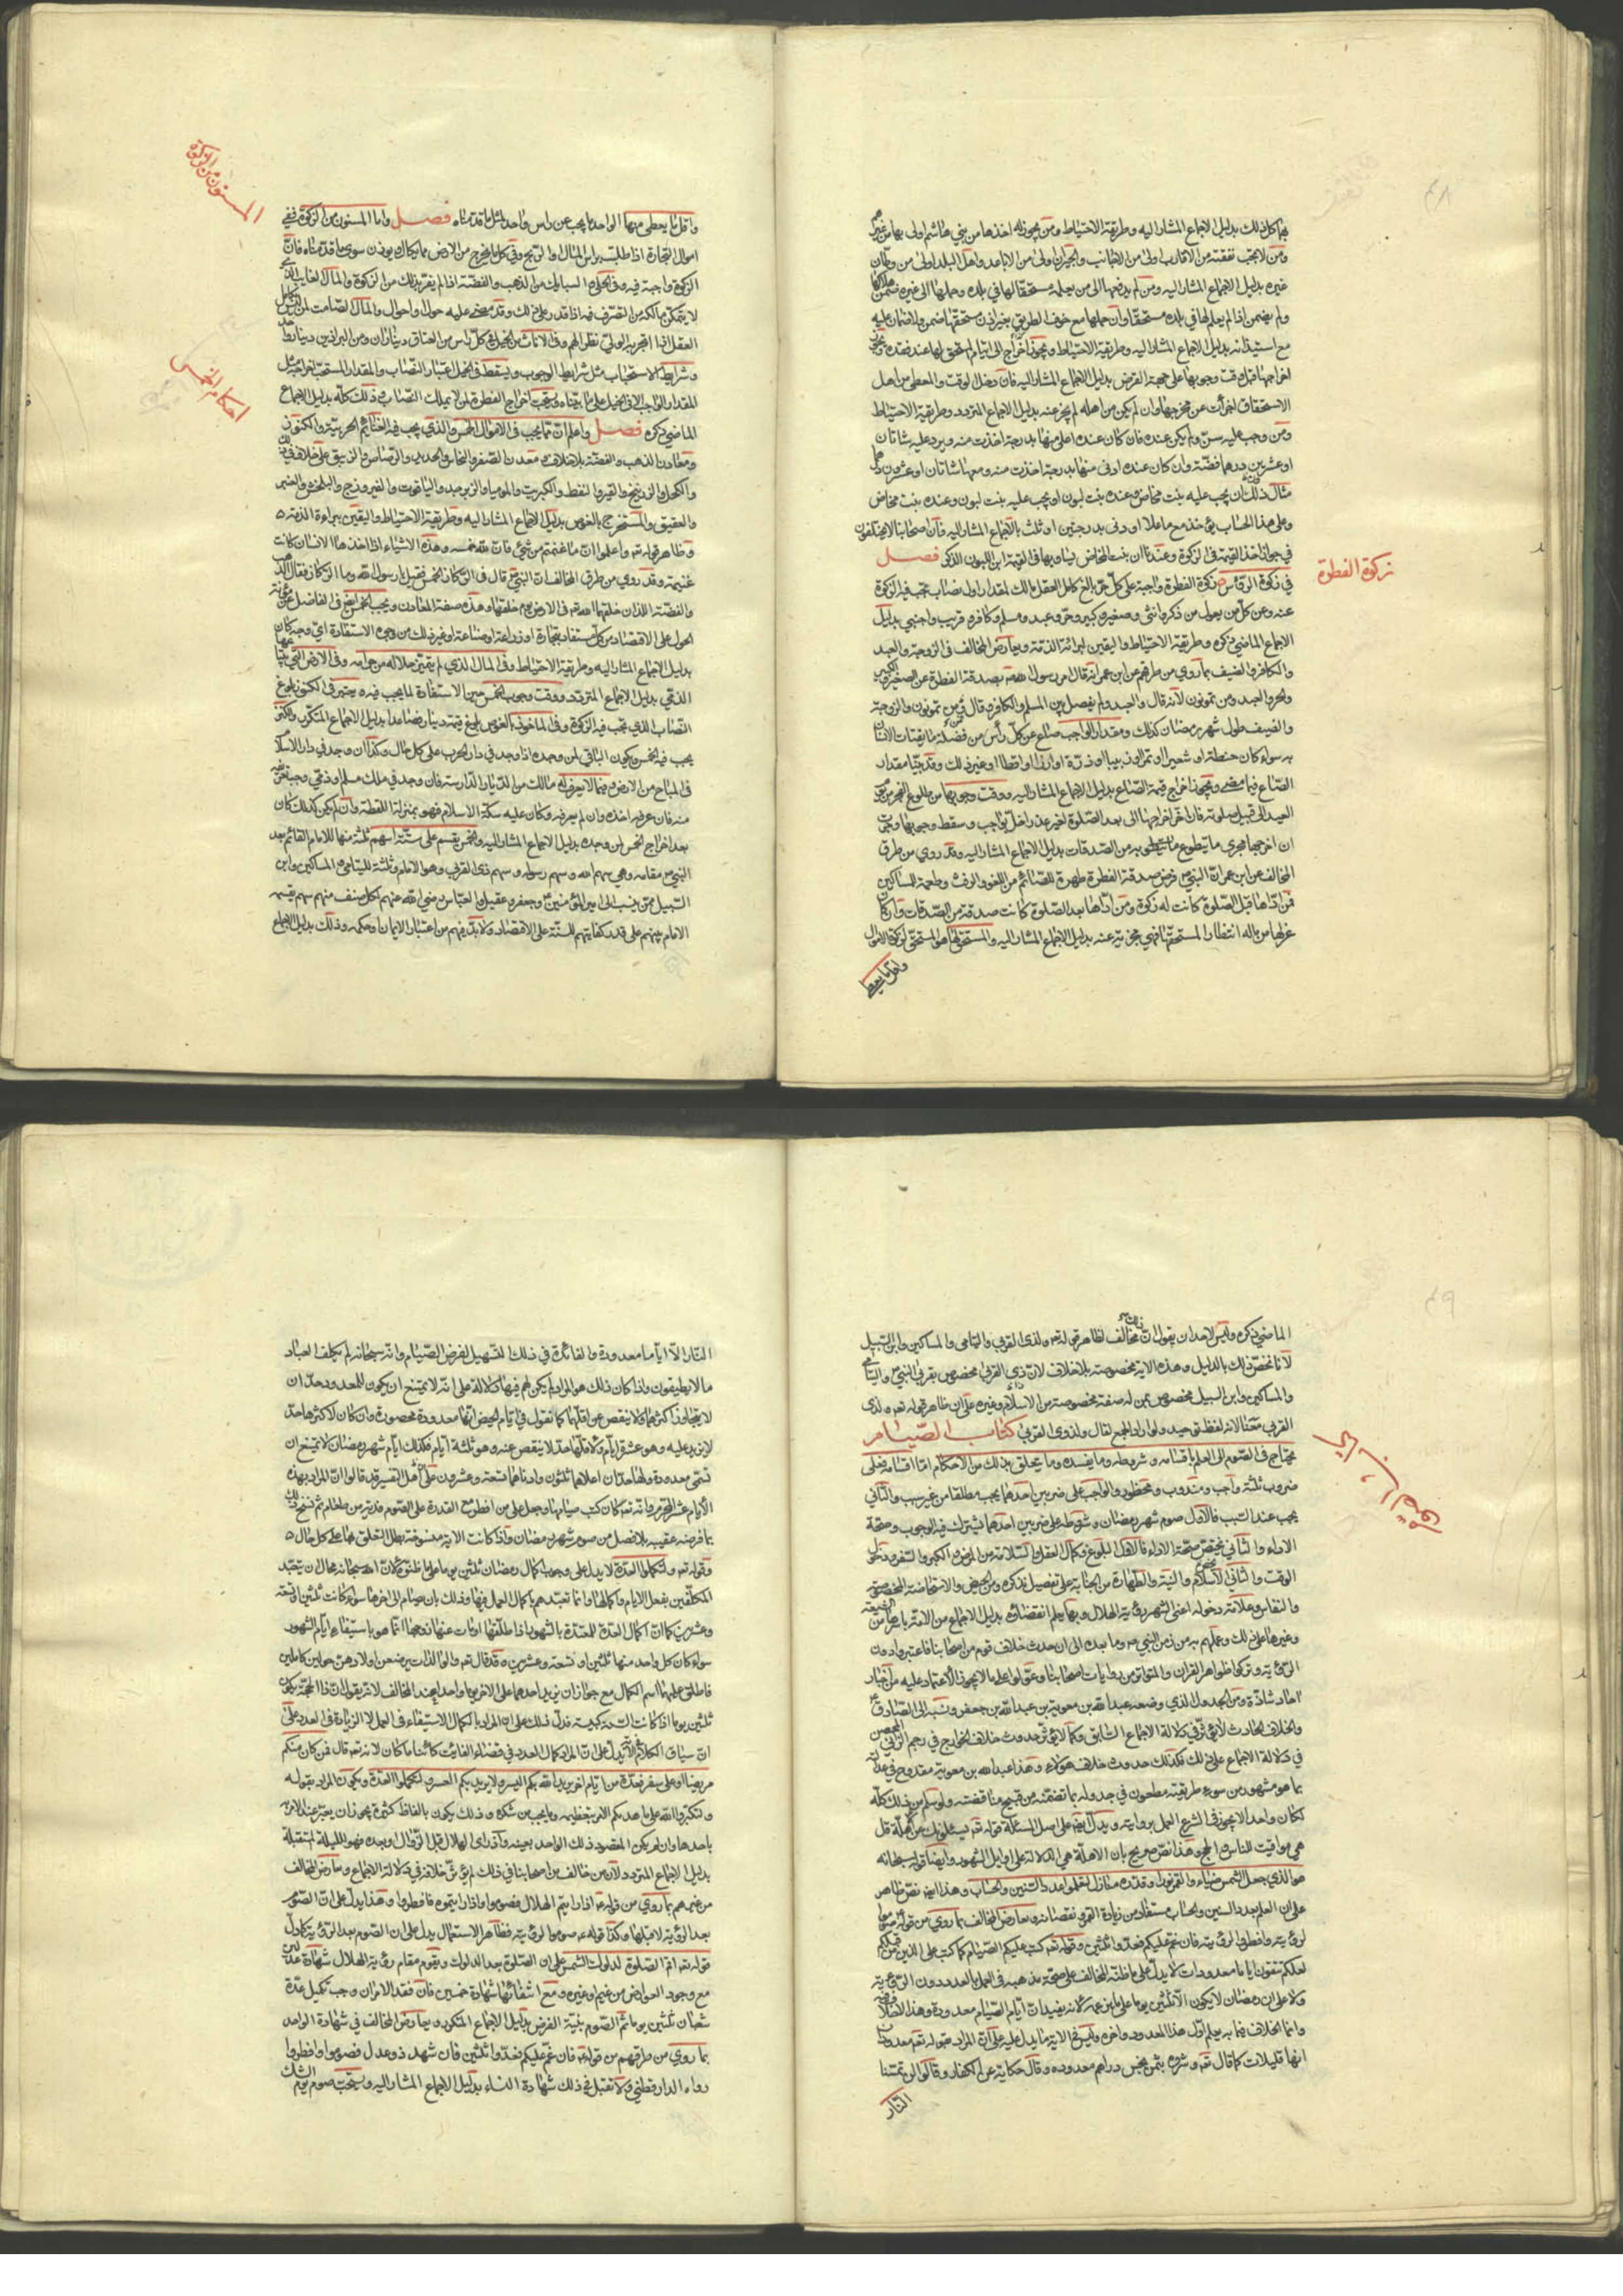 ٤٨
بها كل ذلك بدليل الاجماع المشار اليه وطريقة الاحتياط ومن يجوز له اخذها من بني هاشم اولى بها من غيرهم
ومن لا يجب نفقته من الاقارب اولى من الاجانب والجيران اولى من الاباعد واهل البلد اولى من
غيره بدليل الاجماع المشار اليه ومن لم يدفعها الى من يعلمه مستحقا لها في بلده وحملها الى غيره ضمن هلاكها
ولم يضمن اذا لم يعلم لها في بلده مستحقا وان حملها مع خوف الطريق بغير اذن مستحقها ضمن ولا ضمان عليه
مع استيذانه بدليل الاجماع المشار اليه وطريقة الاحتياط ويجوز اخراج
اخراجها قبل وقت وجوبها على جهة القرض بدليل الاجماع المشار اليه فان دخل الوقت والمعطى من اهل
الاستحقاق اجزأت عن مخرجها وان لم يكن من اهله لم يجز عنه بدليل الاجماع المتردد وطريقة الاحتياط
ومن وجب عليه سن ولم يكن عنده فان كان عنده اعلى منها بدرجة اخذت منه ويرد عليه شاتان
او عشرين درهما فضة وان كان عنده ادنى منها بدرجة اخذت منه ومعها شاتان او عشرون درهما
مثال ذلك ان يجب عليه بنت مخاض وعنده بنت لبون او يجب عليه بنت لبون وعنده بنت مخاض
وعلى هذا الحساب يؤخذ مع ما علا او دنى بدرجتين او ثلث بالاجماع المشار اليه فان اصحابنا لا يختلفون
في جواز اخذ القيمة في الزكوة وعندنا ان بنت المخاض يساويها في القيمة ابن اللبون الذكر فصل
زكوة الفطرة
في زكوة الرؤس زكوة الفطرة واجبة على كل حر بالغ كامل العقل مالك لمقدار اول نصاب تجب فيه الزكوة
عنه وعن كل من يعول من ذكر وانثى وصغير وكبير وحر وعبد ومسلم وكافر وقريب واجنبي بدليل
الاجماع الماضي ذكره وطريقة الاحتياط واليقين لبرائة الذمة ويعارض المخالف في الزوجة والعبد
والكافر والضيف بما روي من طرقهم من ابن عمر انه قال امر رسول الله بصدقة الفطرة عن الصغير والكبير
والحر والعبد ومن تمونون لانه قال والعبد ولم يفصل بين المسلم والكافر وقال ومن تمونون والزوجة
والضيف طول شهر رمضان كذلك ومقدار الواجب صاع عن كل رأس من فضلة ما يقتات الانسان
به سواء كان حنطة او شعيرا او تمرا او زبيبا او ذرة او ارزا او اقطا او غير ذلك وقد بينا مقدار
الصاع فيما مضى ويجوز اخراج قيمة الصاع بدليل الاجماع المشار اليه ووقت وجوبها من طلوع الفجر من يوم
العيد الى قبيل صلوته فان اخر اخراجها الى بعد الصلوة لغير عذر اخل بواجب وسقط وجوبها وجرت
ان اخرجها مجرى ما يتطوع به من الصدقات بدليل الاجماع المشار اليه وقد روي من طرق
المخالف عن ابن عمر ان النبي فرض صدقة الفطرة طهرة للصائم من اللغو والرفث وطعمة للمساكين
فمن اداها قبل الصلوة كانت له زكوة ومن اداها بعد الصلوة كانت صدقة من الصدقات وان كان
عزلها من ماله انتظارا لمستحقها فهي مجزية عنه بدليل الاجماع المشار اليه والمستحق لها هو المستحق لزكوة الاموال
واقل ما يعطى
المسنون من الزكوة
واقل ما يعطى منها الواحد ما يجب عن راس واحد لمثل ما قدمناه فصل واما المسنون من الزكوة ففي
اموال التجارة اذا طلبت براس المال او الربح وفي كل ما يخرج من الارض مما يكال او يوزن سوى ما قدمناه فان
الزكوة واجبة فيه وفي الحلي والسبائك من الذهب والفضة اذا لم يفر بذلك من الزكوة والمال الغايب الذي
لا يتمكن مالكه من التصرف فيه اذا قدر على ذلك وقد مضى عليه حول او احوال والمال الصامت لمن ليس بكامل
العقل اذا اتجر به الولي نظرا لهم وفي الاناث من الخيل في كل رأس من العتاق ديناران ومن البراذين دينار واحد
احكام الخمس
وشرايط الاستحباب مثل شرايط الوجوب ويسقط في الخيل اعتبار النصاب والمقدار المستحب اخراجه مثل
المقدار الواجب الا في الخيل على ما بيناه ويستحب اخراج الفطرة لمن لا يملك النصاب وذلك كله بدليل الاجماع
الماضي ذكره فصل واعلم ان مما يجب في الاموال الخمس والذي يجب فيه الغنائم الحربية والكنوز
ومعادن الذهب والفضة بلا خلاف ومعدن الصفر والنحاس والحديد والرصاص والزيبق على خلاف في ذلك
والكحل والزرنيخ والقير والنفط والكبريت والموميا والزبرجد والياقوت والفيروزج والبلخش والعنبر
والعقيق والمستخرج بالغوص بدليل الاجماع المشار اليه وطريقة الاحتياط واليقين ببراءة الذمة
وظاهر قوله تعالى واعلموا ان ما غنمتم من شيء فان لله خمسه وهذه الاشياء اذا اخذها الانسان كانت
غنيمة وقد روي من طرق المخالف ان النبي قال في الركاز الخمس فقيل يا رسول الله وما الركاز فقال الذهب
والفضة اللذان خلقهما الله في الارض يوم خلقها وهذه صفة المعادن ويجب الخمس ايضا في الفاضل عن مؤنة
الحول على الاقتصاد من كل مستفاد بتجارة او زراعة او صناعة او غير ذلك من وجوه الاستفادة اي وجه كان
بدليل الاجماع المشار اليه وطريقة الاحتياط وفي المال الذي لم يتميز حلاله من حرامه وفي الارض التي يبتاعها
الذمي بدليل الاجماع المتردد ووقت وجوب الخمس حين الاستفادة لما يجب فيه ويعتبر في الكنوز بلوغ
النصاب الذي تجب فيه الزكوة وفي الماخوذ بالغوص بلوغ قيمة دينار فصاعدا بدليل الاجماع المتكرر والكنز
يجب فيه الخمس ويكون الباقي لمن وجده اذا وجد في دار الحرب على كل حال وكذا ان وجد في دار الاسلام
في المباح من الارض وفيما لا يعرف له مالك من الديار الدارسة فان وجد في ملك مسلم او ذمي وجب تعريفه
منه فان عرفه اخذه وان لم يعرفه وكان عليه سكة الاسلام فهو بمنزلة اللقطة وان لم يكن كذلك كان
بعد اخراج الخمس لمن وجده بدليل الاجماع المشار اليه والخمس يقسم على ستة اسهم ثلثة منها للامام القائم بعد
النبي مقامه وهي سهم الله وسهم رسوله وسهم ذي القربى وهو الامام وثلثة لليتامى والمساكين وابن
السبيل ممن ينسب الى امير المؤمنين وجعفر وعقيل والعباس رضي الله عنهم لكل صنف منهم سهم يقسمه
الامام بينهم على قدر كفايتهم للسنة على الاقتصاد ولا بد فيهم من اعتبار الايمان او حكمه وذلك بدليل الاجماع
٤٩
الماضي ذكره وليس لاحد ان يقول ان ذلك مخالف لظاهر قوله تعالى ولذي القربى واليتامى والمساكين وابن السبيل
لانا نخص ذلك بالدليل وهذه الاية مخصوصة بلا خلاف لان ذي القربى مخصوص بقربى النبي واليتامى
والمساكين وابن السبيل مخصوص بمن له صفة مخصوصة من الاسلام وغيره على ان ظاهر قوله تعالى ولذي
القربى معنا لانه لفظ توحيد ولو اراد الجمع لقال ولذوي القربى كتاب الصيام
يحتاج في الصوم الى العلم باقسامه وشروطه وما يفسده وما يتعلق بذلك من الاحكام اما اقسامه فعلى
ضروب ثلثة واجب ومندوب ومحظور والواجب على ضربين احدهما يجب مطلقا من غير سبب والثاني
يجب عند السبب فالاول صوم شهر رمضان وشروطه على ضربين احدهما يشترك فيه الوجوب وصحة
الاداء والثاني يختص صحة الاداء فالاول البلوغ وكمال العقل والسلامة من المرض والكبر والسفر ودخول
الوقت والثاني الاسلام والنية والطهارة من الجنابة على تفصيل نذكره ومن الحيض والاستحاضة المخصوصة
والنفاس وعلامة دخوله اعني الشهر رؤية الهلال وبها يعلم انقضاؤه بدليل الاجماع من الامة باسرها من الشيعة
وغيرها على ذلك وعملهم به من زمن النبي وما بعده الى ان حدث خلاف قوم من اصحابنا فاعتبروا دون
الرؤية وتركوا ظواهر القران والمتواتر من روايات اصحابنا وعولوا على ما لا يجوز الاعتماد عليه من اخبار
احاد شاذة ومن الجدول الذي وضعه عبد الله بن معوية بن عبد الله بن جعفر ونسبه الى الصادق
والخلاف الحادث لا يؤثر في دلالة الاجماع السابق وكما لا يؤثر حدوث خلاف الخوارج في رجم الزاني المحصن
في دلالة الاجماع على ذلك فكذلك حدوث خلاف هؤلاء وهذا عبد الله بن معوية مقدوح في عدالته
بما هو مشهور من سوء طريقته مطعون في جدوله بما تضمنه من قبيح مناقضته ولو سلم من ذلك كله
لكان واحدا لا يجوز في الشرع العمل بروايته ويدل ايضا على اصل المسئلة قوله تعالى يسئلونك عن الاهلة قل
هي مواقيت للناس والحج وهذا نص صريح بان الاهلة هي الدلالة على اوايل الشهور وايضا قوله سبحانه
هو الذي جعل الشمس ضياء والقمر نورا وقدره منازل لتعلموا عدد السنين والحساب وهذا ايضا نص ظاهر
على ان العلم بعدد السنين والحساب مستفاد من زيادة القمر ونقصانه ويعارض المخالف بما روي من قوله صوموا
لرؤيته وافطروا لرؤيته فان غم عليكم فعدوا ثلثين وقوله تعالى كتب عليكم الصيام كما كتب على الذين من قبلكم
لعلكم تتقون اياما معدودات لا يدل على ما ظنه المخالف على صحة مذهبه في العمل بالعدد دون الرؤية
ولا على ان رمضان لا يكون الا ثلثين يوما على ما زعمه لانه يفيد ان ايام الصيام معدودة وهذا لا خلاف فيه
وانما الخلاف فيما به يعلم اول هذا المعدود واخره وليس في الاية ما يدل عليه على ان المراد بقوله تعالى معدودات
انها قليلات كما قال تعالى وشروه بثمن بخس دراهم معدودة وقال حكاية عن الكفار وقالوا لن تمسنا
النار
النار الا اياما معدودة والفائدة في ذلك التسهيل لفرض الصيام وانه سبحانه لم يكلف العباد
ما لا يطيقون واذا كان ذلك هو المراد لم يكن لهم فيها دلالة على انه لا يمتنع ان يكون للمعدود حدان
لا يتجاوز اكثرهما ولا ينقص عن اقلهما كما نقول في ايام الحيض انها معدودة محصورة وان كان لاكثرها حد
لا يزيد عليه وهو عشرة ايام ولاقلها حد لا ينقص عنه وهو ثلثة ايام فكذلك ايام شهر رمضان لا يمتنع ان
تسمى معدودة ولها حدان اعلاهما ثلثون وادناهما تسعة وعشرون على ان اهل التفسير قد قالوا ان المراد بهذه
الايام عشر المحرم وانه تعالى كان كتب صيامها وجعل على من افطر مع القدرة على الصوم فدية من طعام ثم نسخ ذلك
بما فرضه عقيبه بلا فصل من صوم شهر رمضان واذا كانت الاية منسوخة بطل التعلق بها على كل حال
وقوله تعالى ولتكملوا العدة لا يدل على وجوب اكمال رمضان ثلثين يوما على ما ظنوه لان الله سبحانه محال ان يتعبد
المكلفين بفعل الايام واكمالها وانما تعبدهم باكمال العمل فيها وذلك بان يصام الى اخرها سواء كانت ثلثين او تسعة
وعشرين كما ان اكمال العدة للمعتدة بالشهور اذا طلقها او مات عنها زوجها انما هو باستيفاء ايام الشهور
سواء كان كل واحد منها ثلثين او تسعة وعشرين وقد قال تعالى والوالدات يرضعن اولادهن حولين كاملين
فاطلق عليهما اسم الكمال مع جواز ان يزيد احدهما على الاخر يوما واحدا عند المخالف لانه يقول ان ذا الحجة يكون
ثلثين يوما اذا كانت السنة كبيسة فدل ذلك على ان المراد بالكمال الاستيفاء في العمل لا الزيادة في العدد على
ان سياق الكلام يدل على ان المراد كمال العدد في قضاء الفايت كائنا ما كان لانه تعالى قال فمن كان منكم
مريضا او على سفر فعدة من ايام اخر يريد الله بكم اليسر ولا يريد بكم العسر ولتكملوا العدة ويكون المراد بقوله
ولتكبروا الله على ما هديكم الامر بتعظيمه وما يجب من شكره وذلك يكون بالفاظ كثيرة يجوز ان يعبر عند الامر
باحدها وان لم يكن المقصود ذلك الواحد بعينه واذا رأى الهلال قبل الزوال او بعده فهو لليلة المستقبلة
بدليل الاجماع المتردد ولان من خالف من اصحابنا في ذلك لم يؤثر خلافه في دلالة الاجماع ويعارض المخالف
من غيرهم بما روي من قوله اذا رأيتم الهلال فصوموا واذا رأيتموه فافطروا وهذا يدل على ان الصوم
بعد الرؤية لا قبلها وكذا قوله صوموا لرؤيته فظاهر الاستعمال يدل على ان الصوم بعد الرؤية كما دل
قوله تعالى اقم الصلوة لدلوك الشمس على ان الصلوة بعد الدلوك ويقوم مقام رؤية الهلال شهادة عدلين
مع وجود العوارض من غيم وغيره ومع انتفائها شهادة خمسين فان فقد الامران وجب تكميل عدة
شعبان ثلثين يوما ثم الصوم بنية الفرض بدليل الاجماع المتكرر ويعارض المخالف في شهادة الواحد
بما روي من طرقهم من قوله فان غم عليكم فعدوا ثلثين فان شهد ذو عدل فصوموا وافطروا
رواه الدارقطني ولا تقبل في ذلك شهادة النساء بدليل الاجماع المشار اليه ويستحب صوم يوم الشك